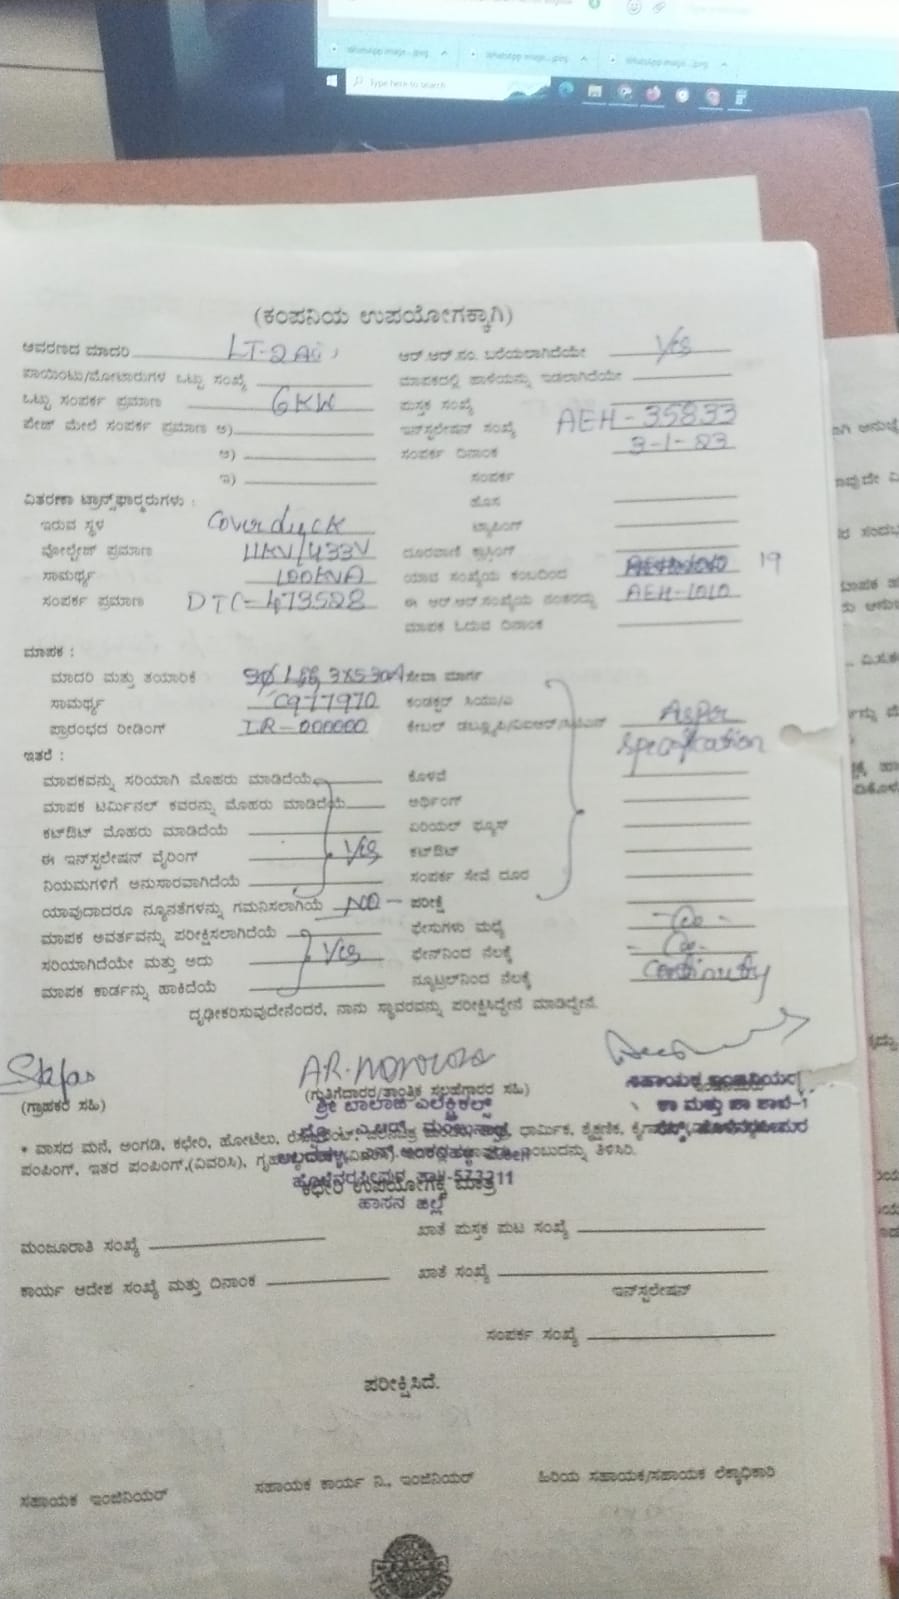 Type here to search
(ಕಂಪನಿಯ ಉಪಯೋಗಕ್ಕಾಗಿ)
ಆವರಣದ ಮಾದರಿ LT-2A ಆರ್.ಆರ್.ಸಂ. ಬರೆಯಲಾಗಿದೆಯೇ Yes
ಪಾಯಿಂಟು/ಮೋಟಾರುಗಳ ಒಟ್ಟು ಸಂಖ್ಯೆ ಮಾಪಕದಲ್ಲಿ ಹಾಳೆಯನ್ನು ಇಡಲಾಗಿದೆಯೇ
ಒಟ್ಟು ಸಂಪರ್ಕ ಪ್ರಮಾಣ 6KW ಪುಸ್ತಕ ಸಂಖ್ಯೆ
ಪೇಜ್ ಮೇಲೆ ಸಂಪರ್ಕ ಪ್ರಮಾಣ ಅ) ಇನ್‌ಸ್ಟಲೇಷನ್ ಸಂಖ್ಯೆ AEH-35833
ಆ) ಸಂಪರ್ಕ ದಿನಾಂಕ 3-1-23
ಇ) ಸಂಪರ್ಕ
ವಿತರಣಾ ಟ್ರಾನ್ಸ್‌ಫಾರ್ಮರುಗಳು : ಹೊಸ
ಇರುವ ಸ್ಥಳ ಟ್ಯಾಪಿಂಗ್
ವೋಲ್ಟೇಜ್ ಪ್ರಮಾಣ 11KV/433V ದೂರವಾಣಿ ಕ್ರಾಸಿಂಗ್
ಸಾಮರ್ಥ್ಯ 100KVA ಯಾವ ಸಂಖ್ಯೆಯ ಕಂಬದಿಂದ 19
ಸಂಪರ್ಕ ಪ್ರಮಾಣ DTC-473528 ಈ ಆರ್.ಆರ್.ಸಂಖ್ಯೆಯ ನಂತರದ್ದು AEH-1010
ಮಾಪಕ ಓದುವ ದಿನಾಂಕ
ಮಾಪಕ :
ಮಾದರಿ ಮತ್ತು ತಯಾರಿಕೆ ಸೇವಾ ಮಾರ್ಗ
ಸಾಮರ್ಥ್ಯ C977970 ಕಂಡಕ್ಟರ್ ಸಿಯು/ಎ
ಪ್ರಾರಂಭದ ರೀಡಿಂಗ್ IR-000000 ಕೇಬಲ್ As per
ಇತರೆ : specification
ಮಾಪಕವನ್ನು ಸರಿಯಾಗಿ ಮೊಹರು ಮಾಡಿದೆಯೆ ಕೊಳವೆ
ಮಾಪಕ ಟರ್ಮಿನಲ್ ಕವರನ್ನು ಮೊಹರು ಮಾಡಿದೆಯೆ ಅರ್ಥಿಂಗ್
ಕಟ್‌ಔಟ್ ಮೊಹರು ಮಾಡಿದೆಯೆ ಏರಿಯಲ್ ಫ್ಯೂಸ್
ಈ ಇನ್‌ಸ್ಟಲೇಷನ್ ವೈರಿಂಗ್ Yes ಕಟ್‌ಔಟ್
ನಿಯಮಗಳಿಗೆ ಅನುಸಾರವಾಗಿದೆಯೆ ಸಂಪರ್ಕ ಸೇವೆ ದೂರ
ಯಾವುದಾದರೂ ನ್ಯೂನತೆಗಳನ್ನು ಗಮನಿಸಲಾಗಿಯೆ NO - ಪರೀಕ್ಷೆ
ಮಾಪಕ ಅವರ್ತವನ್ನು ಪರೀಕ್ಷಿಸಲಾಗಿದೆಯೆ ಫೇಸುಗಳು ಮಧ್ಯೆ
ಸರಿಯಾಗಿದೆಯೇ ಮತ್ತು ಅದು Yes ಫೇಸ್‌ನಿಂದ ನೆಲಕ್ಕೆ
ಮಾಪಕ ಕಾರ್ಡನ್ನು ಹಾಕಿದೆಯೆ ನ್ಯೂಟ್ರಲ್‌ನಿಂದ ನೆಲಕ್ಕೆ Continuity
ದೃಢೀಕರಿಸುವುದೇನೆಂದರೆ, ನಾನು ಸ್ಥಾವರವನ್ನು ಪರೀಕ್ಷಿಸಿದ್ದೇನೆ ಮಾಡಿದ್ದೇನೆ.
(ಗ್ರಾಹಕರ ಸಹಿ) (ಗುತ್ತಿಗೆದಾರರ/ತಾಂತ್ರಿಕ ಸಲಹೆಗಾರರ ಸಹಿ) ಸಹಾಯಕ ಇಂಜಿನಿಯರ್
ಶ್ರೀ ಬಾಲಾಜಿ ಎಲೆಕ್ಟ್ರಿಕಲ್ಸ್ ಕಾ ಮತ್ತು ಪಾ ಶಾಖೆ-1
* ವಾಸದ ಮನೆ, ಅಂಗಡಿ, ಕಛೇರಿ, ಹೋಟೆಲು, ಧಾರ್ಮಿಕ, ಶೈಕ್ಷಣಿಕ,
ಪಂಪಿಂಗ್, ಇತರ ಪಂಪಿಂಗ್,(ವಿವರಿಸಿ), ಎಂಬುದನ್ನು ತಿಳಿಸಿರಿ.
ಕಛೇರಿ ಉಪಯೋಗಕ್ಕೆ ಮಾತ್ರ
ಹಾಸನ ಜಿಲ್ಲೆ
ಮಂಜೂರಾತಿ ಸಂಖ್ಯೆ ಖಾತೆ ಪುಸ್ತಕ ಪುಟ ಸಂಖ್ಯೆ
ಕಾರ್ಯ ಆದೇಶ ಸಂಖ್ಯೆ ಮತ್ತು ದಿನಾಂಕ ಖಾತೆ ಸಂಖ್ಯೆ
ಇನ್‌ಸ್ಟಲೇಷನ್
ಸಂಪರ್ಕ ಸಂಖ್ಯೆ
ಪರೀಕ್ಷಿಸಿದೆ.
ಸಹಾಯಕ ಇಂಜಿನಿಯರ್ ಸಹಾಯಕ ಕಾರ್ಯ ನಿ., ಇಂಜಿನಿಯರ್ ಹಿರಿಯ ಸಹಾಯಕ/ಸಹಾಯಕ ಲೆಕ್ಕಾಧಿಕಾರಿ